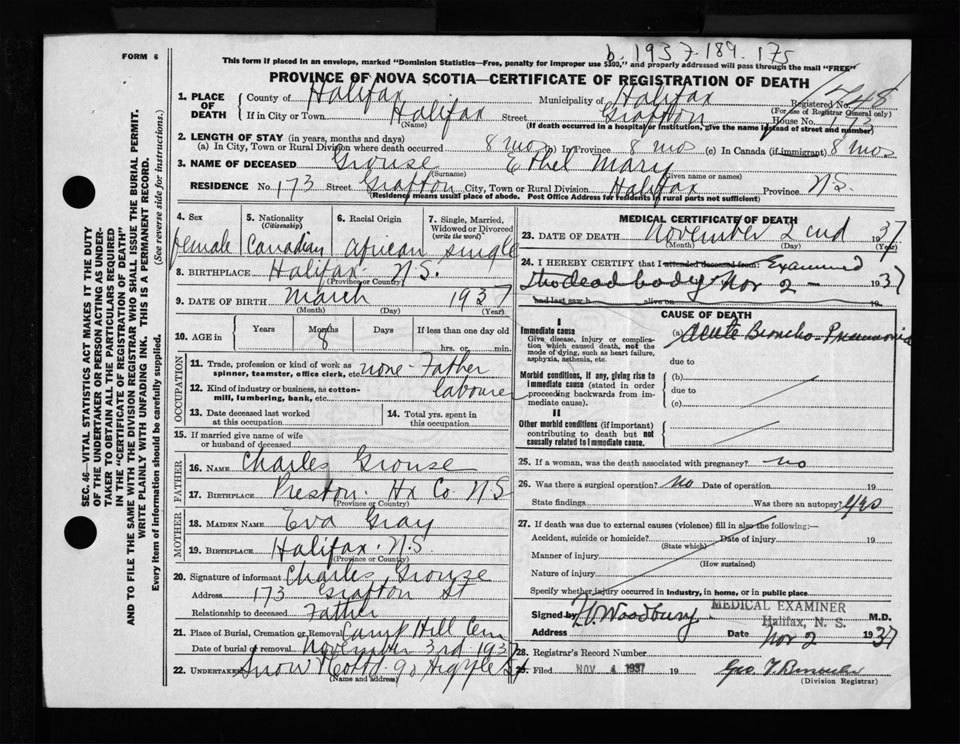 FORM 6
b. 1937-189-175
This form if placed in an envelope, marked "Dominion Statistics—Free, penalty for improper use $300," and properly addressed will pass through the mail "FREE"
PROVINCE OF NOVA SCOTIA—CERTIFICATE OF REGISTRATION OF DEATH
1. PLACE OF DEATH
County of Halifax Municipality of Halifax Registered No.
(For use of Registrar General only)
If in City or Town Halifax Street Grafton House No. 173
(Name) (If death occurred in a hospital or institution, give the name instead of street and number)
2. LENGTH OF STAY (in years, months and days)
(a) In City, Town or Rural Division where death occurred 8 mos (b) In Province 8 mos (c) In Canada (if immigrant) 8 mos
3. NAME OF DECEASED Grouse Ethel Mary
(Surname) (Given name or names)
RESIDENCE No. 173 Street Grafton City, Town or Rural Division Halifax Province N.S.
(Residence means usual place of abode. Post Office Address for residents in rural parts not sufficient)
4. Sex female
5. Nationality (Citizenship) Canadian
6. Racial Origin African
7. Single, Married, Widowed or Divorced (write the word) single
8. BIRTHPLACE Halifax N.S.
(Province or Country)
9. DATE OF BIRTH March 1937
(Month) (Day) (Year)
10. AGE in Years Months Days If less than one day old
8 hrs. or min.
OCCUPATION
11. Trade, profession or kind of work as spinner, teamster, office clerk, etc. none - Father
12. Kind of industry or business, as cotton-mill, lumbering, bank, etc. labourer
13. Date deceased last worked at this occupation
14. Total yrs. spent in this occupation
15. If married give name of wife or husband of deceased
FATHER
16. NAME Charles Grouse
17. BIRTHPLACE Preston Hx Co N.S
(Province or Country)
MOTHER
18. MAIDEN NAME Eva Gray
19. BIRTHPLACE Halifax N.S.
(Province or Country)
20. Signature of informant Charles Grouse
Address 173 Grafton St
Relationship to deceased Father
21. Place of Burial, Cremation or Removal Camp Hill Cem
Date of burial or removal November 3rd 1937
22. UNDERTAKER Snow & Co 90 Argyle St
(Name and address)
MEDICAL CERTIFICATE OF DEATH
23. DATE OF DEATH November 2nd 1937
(Month) (Day) (Year)
24. I HEREBY CERTIFY that I attended deceased from: Examined
the dead body Nov 2 - 1937
and last saw h alive on 19
CAUSE OF DEATH
I
Immediate cause
Give disease, injury or complication which caused death, not the mode of dying, such as heart failure, asphyxia, asthenia, etc.
(a) Acute Broncho-Pneumonia
due to
Morbid conditions, if any, giving rise to immediate cause (stated in order proceeding backwards from immediate cause).
(b)
due to
(c)
II
Other morbid conditions (if important) contributing to death but not causally related to immediate cause.
25. If a woman, was the death associated with pregnancy? no
26. Was there a surgical operation? no Date of operation 19
State findings Was there an autopsy? Yes
27. If death was due to external causes (violence) fill in also the following:—
Accident, suicide or homicide? Date of injury 19
(State which)
Manner of injury
(How sustained)
Nature of injury
Specify whether injury occurred in Industry, in home, or in public place
Signed by Woodbury M.D.
MEDICAL EXAMINER
Halifax, N. S.
Address Date Nov 2 1937
28. Registrar's Record Number
29. Filed NOV 4 1937 19 Geo.
(Division Registrar)
SEC. 46—VITAL STATISTICS ACT MAKES IT THE DUTY
OF THE UNDERTAKER OR PERSON ACTING AS UNDER-
TAKER TO OBTAIN ALL THE PARTICULARS REQUIRED
IN THE "CERTIFICATE OF REGISTRATION OF DEATH"
AND TO FILE THE SAME WITH THE DIVISION REGISTRAR WHO SHALL ISSUE THE BURIAL PERMIT.
WRITE PLAINLY WITH UNFADING INK. THIS IS A PERMANENT RECORD.
Every item of information should be carefully supplied. (See reverse side for instructions.)